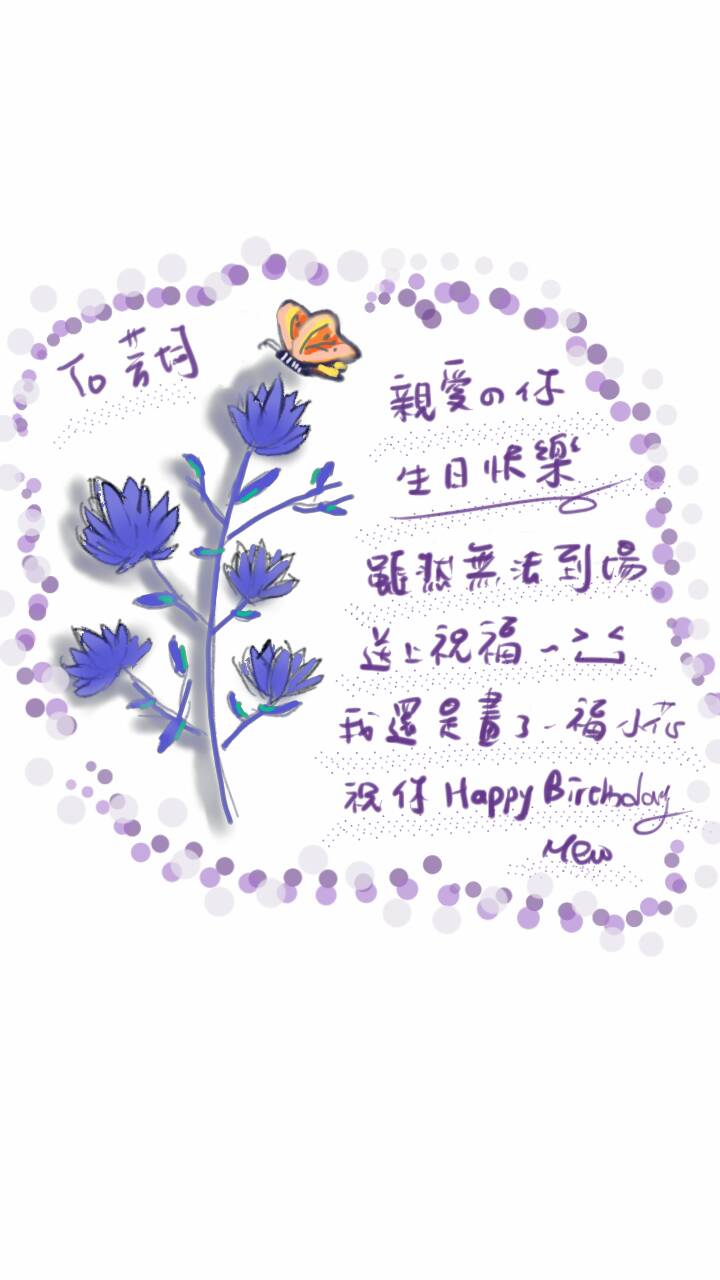 To 芸玥
親愛の你
生日快樂
雖然無法到場
送上祝福~
我還是畫了一福小花
祝你 Happy Birthday
Mew